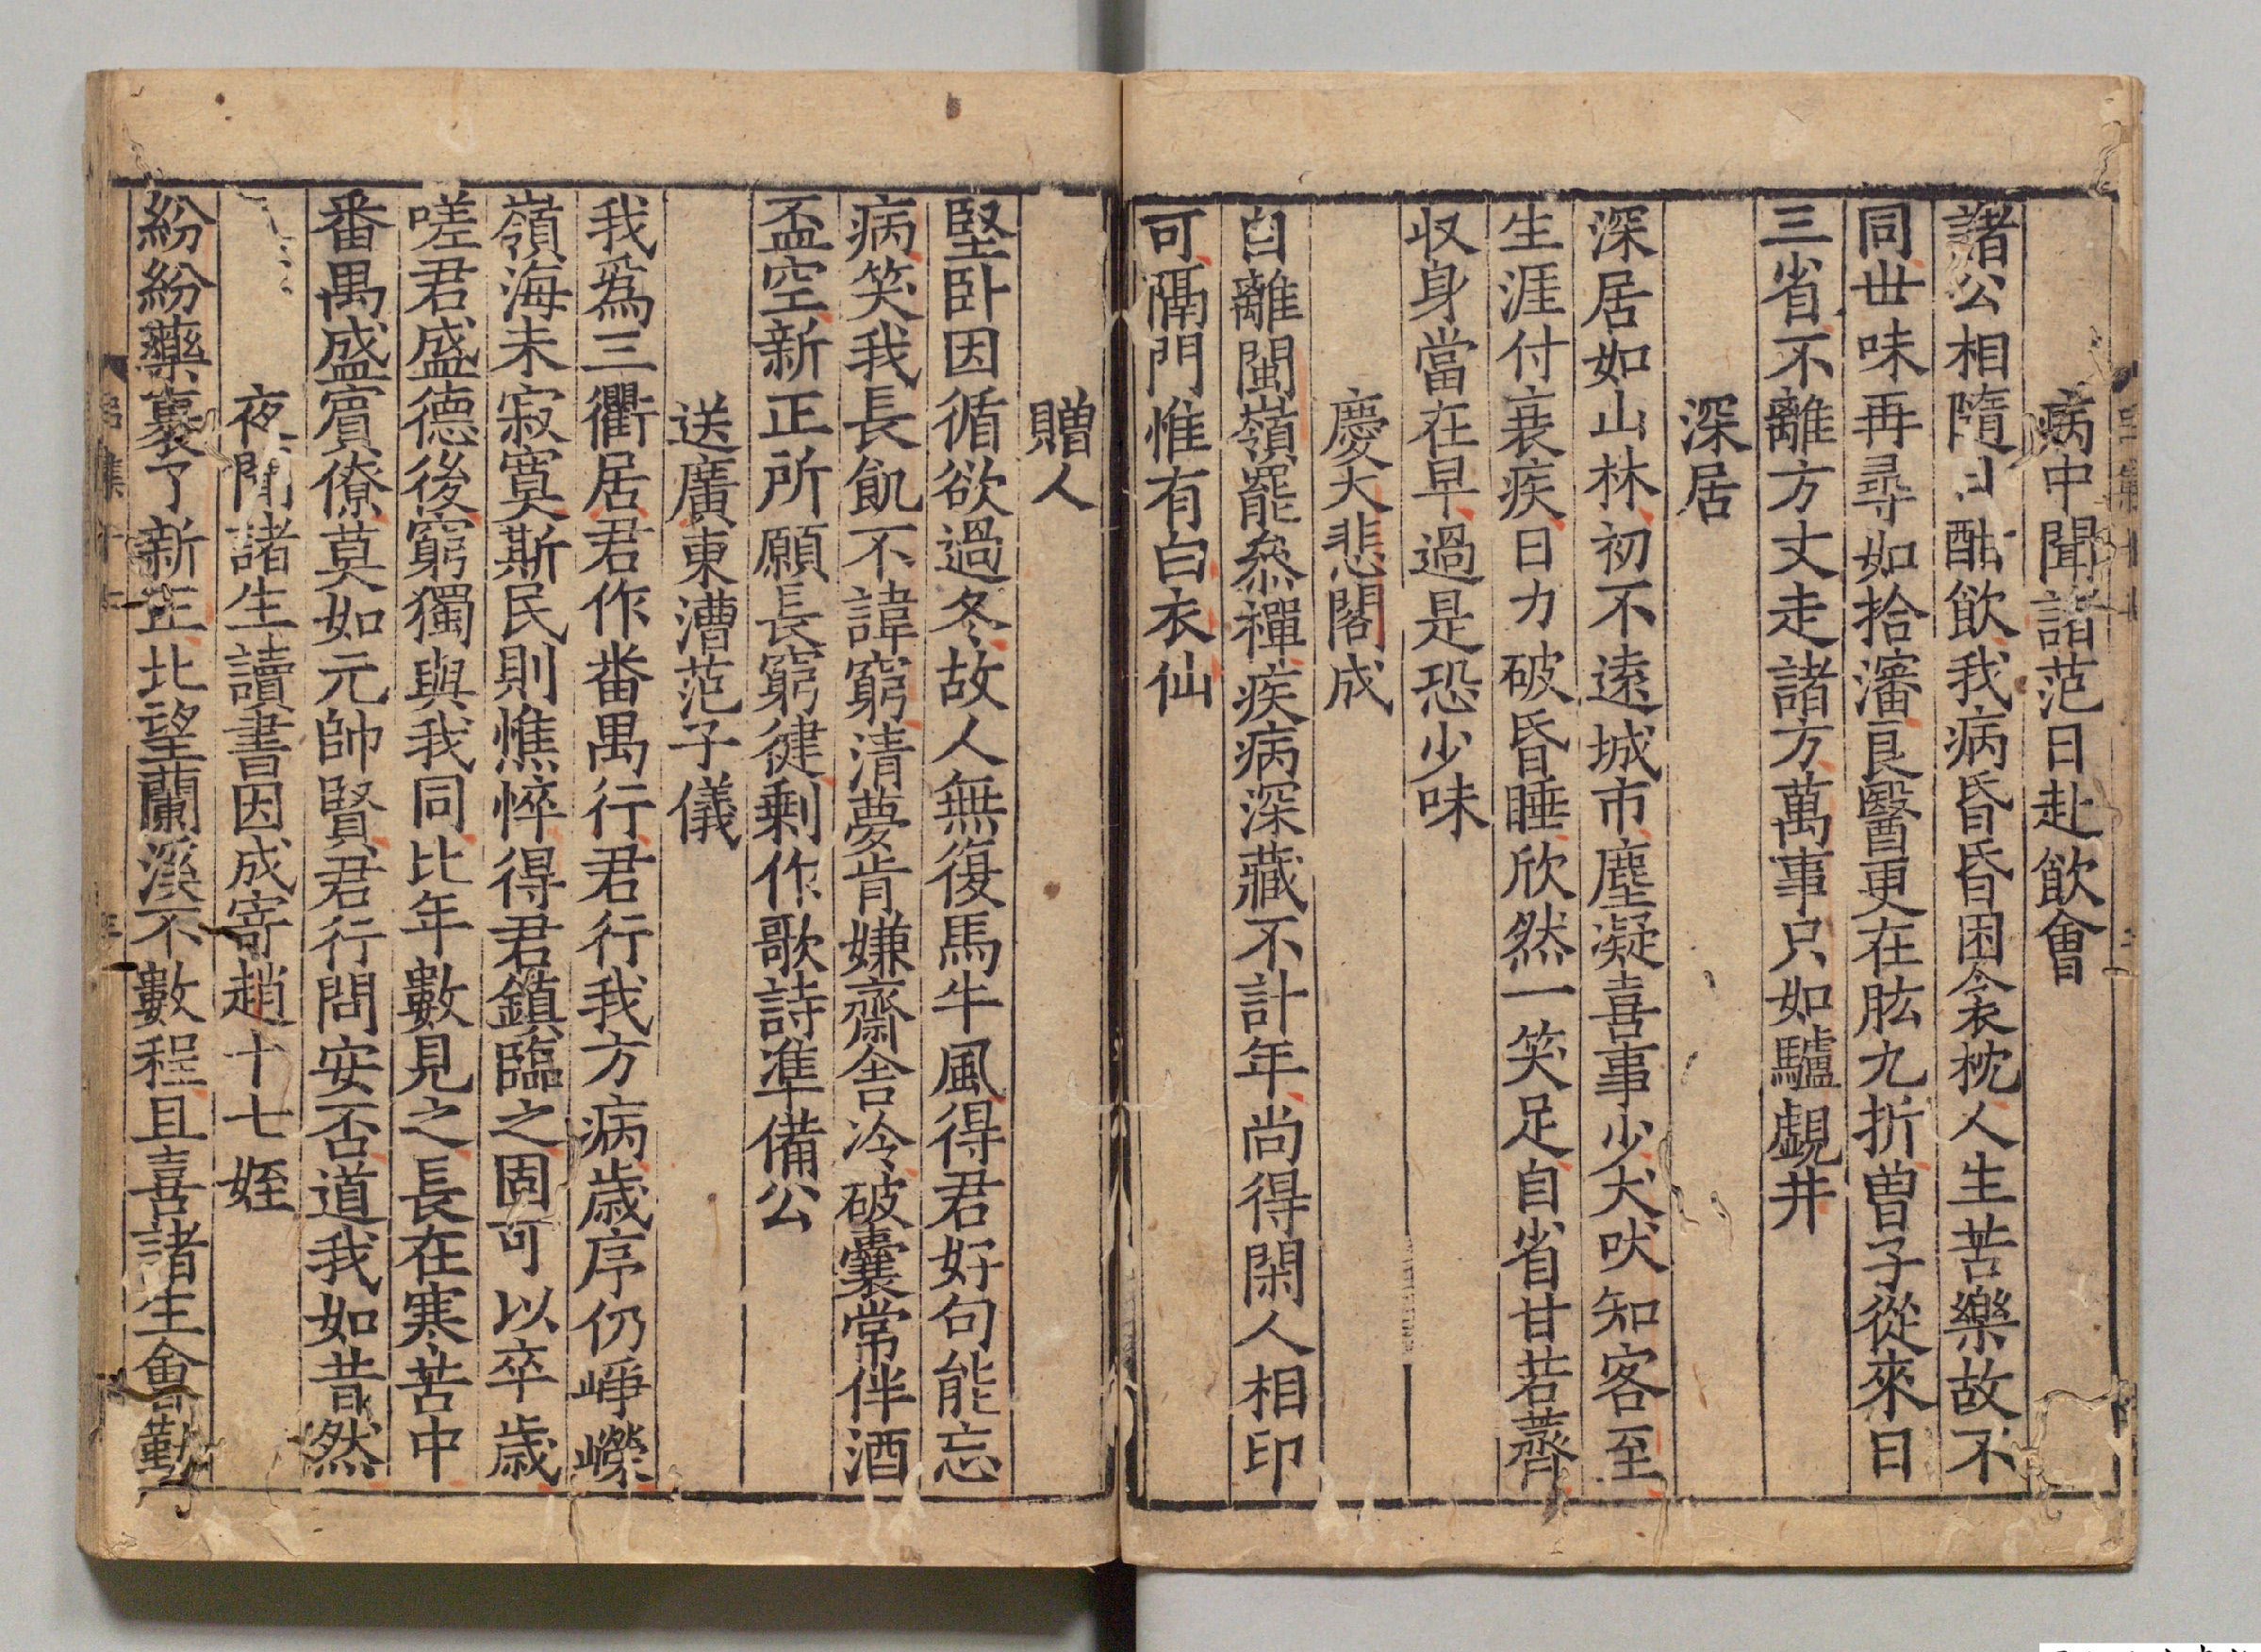 病中聞諸范日赴飲會
諸公相隨日酣飲我病昏昏困衾枕人生苦樂故不
同世味再尋如拾瀋良醫更在肱九折曽子從來日
三省不離方丈走諸方萬事只如驢覷井
深居
深居如山林初不遠城市塵凝喜事少犬吠知客至
生涯付衰疾日力破昏睡欣然一笑足自省甘若薺
収身當在早過是恐少味
慶大悲閣成
自離閩嶺罷叅禪疾病深藏不計年尚得閑人相印
可隔門惟有白衣仙
贈人
堅卧因循欲過冬故人無復馬牛風得君好句能忘
病笑我長飢不諱窮清夢肯嫌齋舎冷破囊常伴酒
盃空新正所願長窮健剰作歌詩準備公
送廣東漕范子儀
我爲三衢居君作畨禺行君行我方病歳序仍崢嶸
嶺海未寂寞斯民則憔悴得君鎮臨之固可以卒歳
嗟君盛德後窮獨與我同比年數見之長在寒苦中
番禺盛賔僚莫如元帥賢君行問安否道我如昔然
夜聞諸生讀書因成寄趙十七姪
紛紛藥裹了新正北望蘭溪不數程且喜諸生會勤